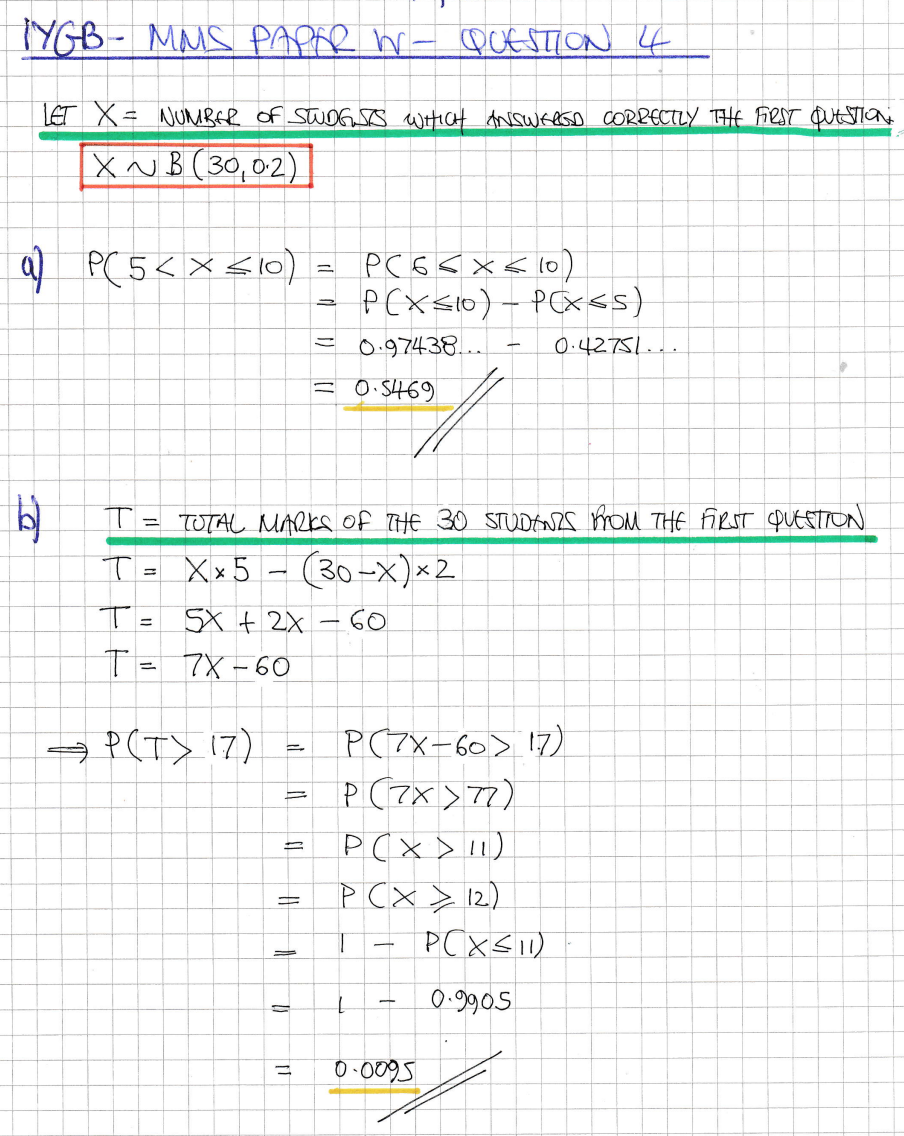 IYGB - MMS PAPER W - QUESTION 4
LET X = NUMBER OF STUDENTS WHICH ANSWERED CORRECTLY THE FIRST QUESTION.
X ~ B(30, 0.2)
a) P(5 < X ≤ 10) = P(6 ≤ X ≤ 10)
= P(X ≤ 10) - P(X ≤ 5)
= 0.97438... - 0.42751...
= 0.5469
b) T = TOTAL MARKS OF THE 30 STUDENTS FROM THE FIRST QUESTION
T = X × 5 - (30 - X) × 2
T = 5X + 2X - 60
T = 7X - 60
⇒ P(T > 17) = P(7X - 60 > 17)
= P(7X > 77)
= P(X > 11)
= P(X ≥ 12)
= 1 - P(X ≤ 11)
= 1 - 0.9905
= 0.0095